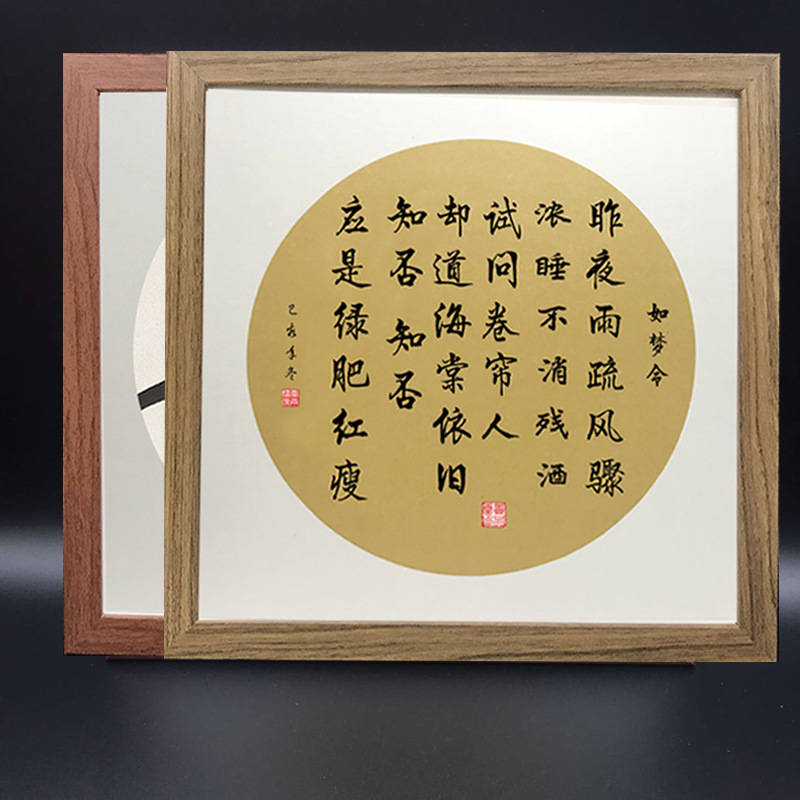 如梦令
昨夜雨疏风骤
浓睡不消残酒
试问卷帘人
却道海棠依旧
知否 知否
应是绿肥红瘦
己亥年冬